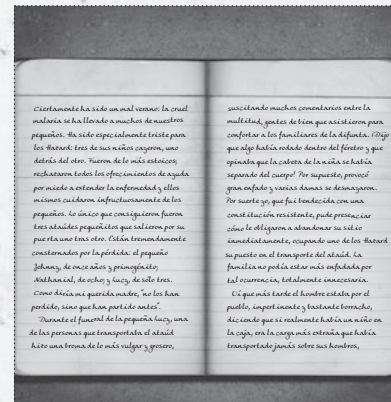 Ciertamente ha sido un mal verano: la cruel
malaria se ha llevado a muchos de nuestros
pequeños. Ha sido especialmente triste para
los Hatard: tres de sus niños cayeron, uno
detrás del otro. Fueron de lo más estoicos;
rechazaron todos los ofrecimientos de ayuda
por miedo a extender la enfermedad y ellos
mismos cuidaron infructuosamente de los
pequeños. Lo único que consiguieron fueron
tres ataúdes pequeñitos que salieron por su
puerta uno tras otro. Están tremendamente
consternados por la pérdida: el pequeño
Johnny, de once años y primogénito;
Nathanial, de ocho; y Lucy, de sólo tres.
Como diría mi querida madre, "no los han
perdido, sino que han partido antes".
Durante el funeral de la pequeña Lucy, una
de las personas que transportaba el ataúd
hizo una broma de lo más vulgar y grosero,
suscitando muchos comentarios entre la
multitud, gentes de bien que asistieron para
confortar a los familiares de la difunta. ¡Dijo
que algo había rodado dentro del féretro y que
opinaba que la cabeza de la niña se había
separado del cuerpo! Por supuesto, provocó
gran enfado y varias damas se desmayaron.
Por suerte yo, que fui bendecida con una
constitución resistente, pude presenciar
cómo le obligaron a abandonar su sitio
inmediatamente, ocupando uno de los Hatard
su puesto en el transporte del ataúd. La
familia no podía estar más enfadada por
tal ocurrencia, totalmente innecesaria.
Oí que más tarde el hombre estaba por el
pueblo, impertinente y bastante borracho,
diciendo que si realmente había un niño en
la caja, era la carga más extraña que había
transportado jamás sobre sus hombros,